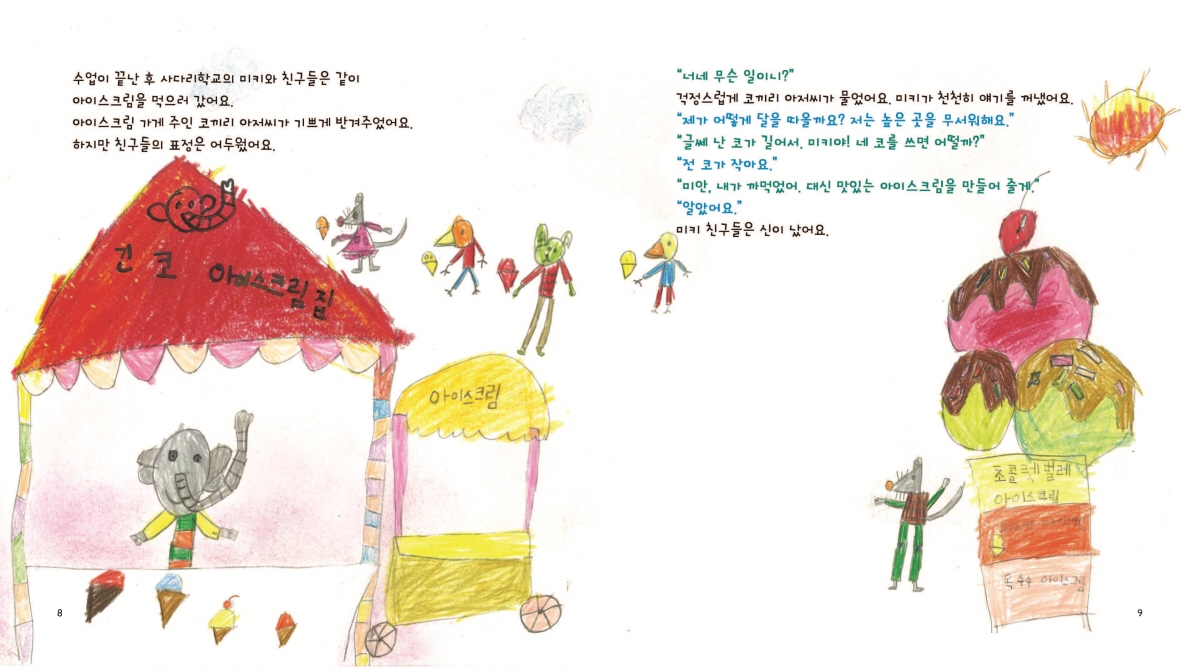 수업이 끝난 후 사다리학교의 미키와 친구들은 같이
아이스크림을 먹으러 갔어요.
아이스크림 가게 주인 코끼리 아저씨가 기쁘게 반겨주었어요.
하지만 친구들의 표정은 어두웠어요.
긴 코 아이스크림 집
아이스크림
8
“너네 무슨 일이니?”
걱정스럽게 코끼리 아저씨가 물었어요. 미키가 천천히 얘기를 꺼냈어요.
“제가 어떻게 달을 따올까요? 저는 높은 곳을 무서워해요.”
“글쎄 난 코가 길어서. 미키야! 네 코를 쓰면 어떨까?”
“전 코가 작아요.”
“미안, 내가 까먹었어. 대신 맛있는 아이스크림을 만들어 줄게.”
“알았어요.”
미키 친구들은 신이 났어요.
초콜렛벌레
아이스크림
옥수수 아이스크림
9